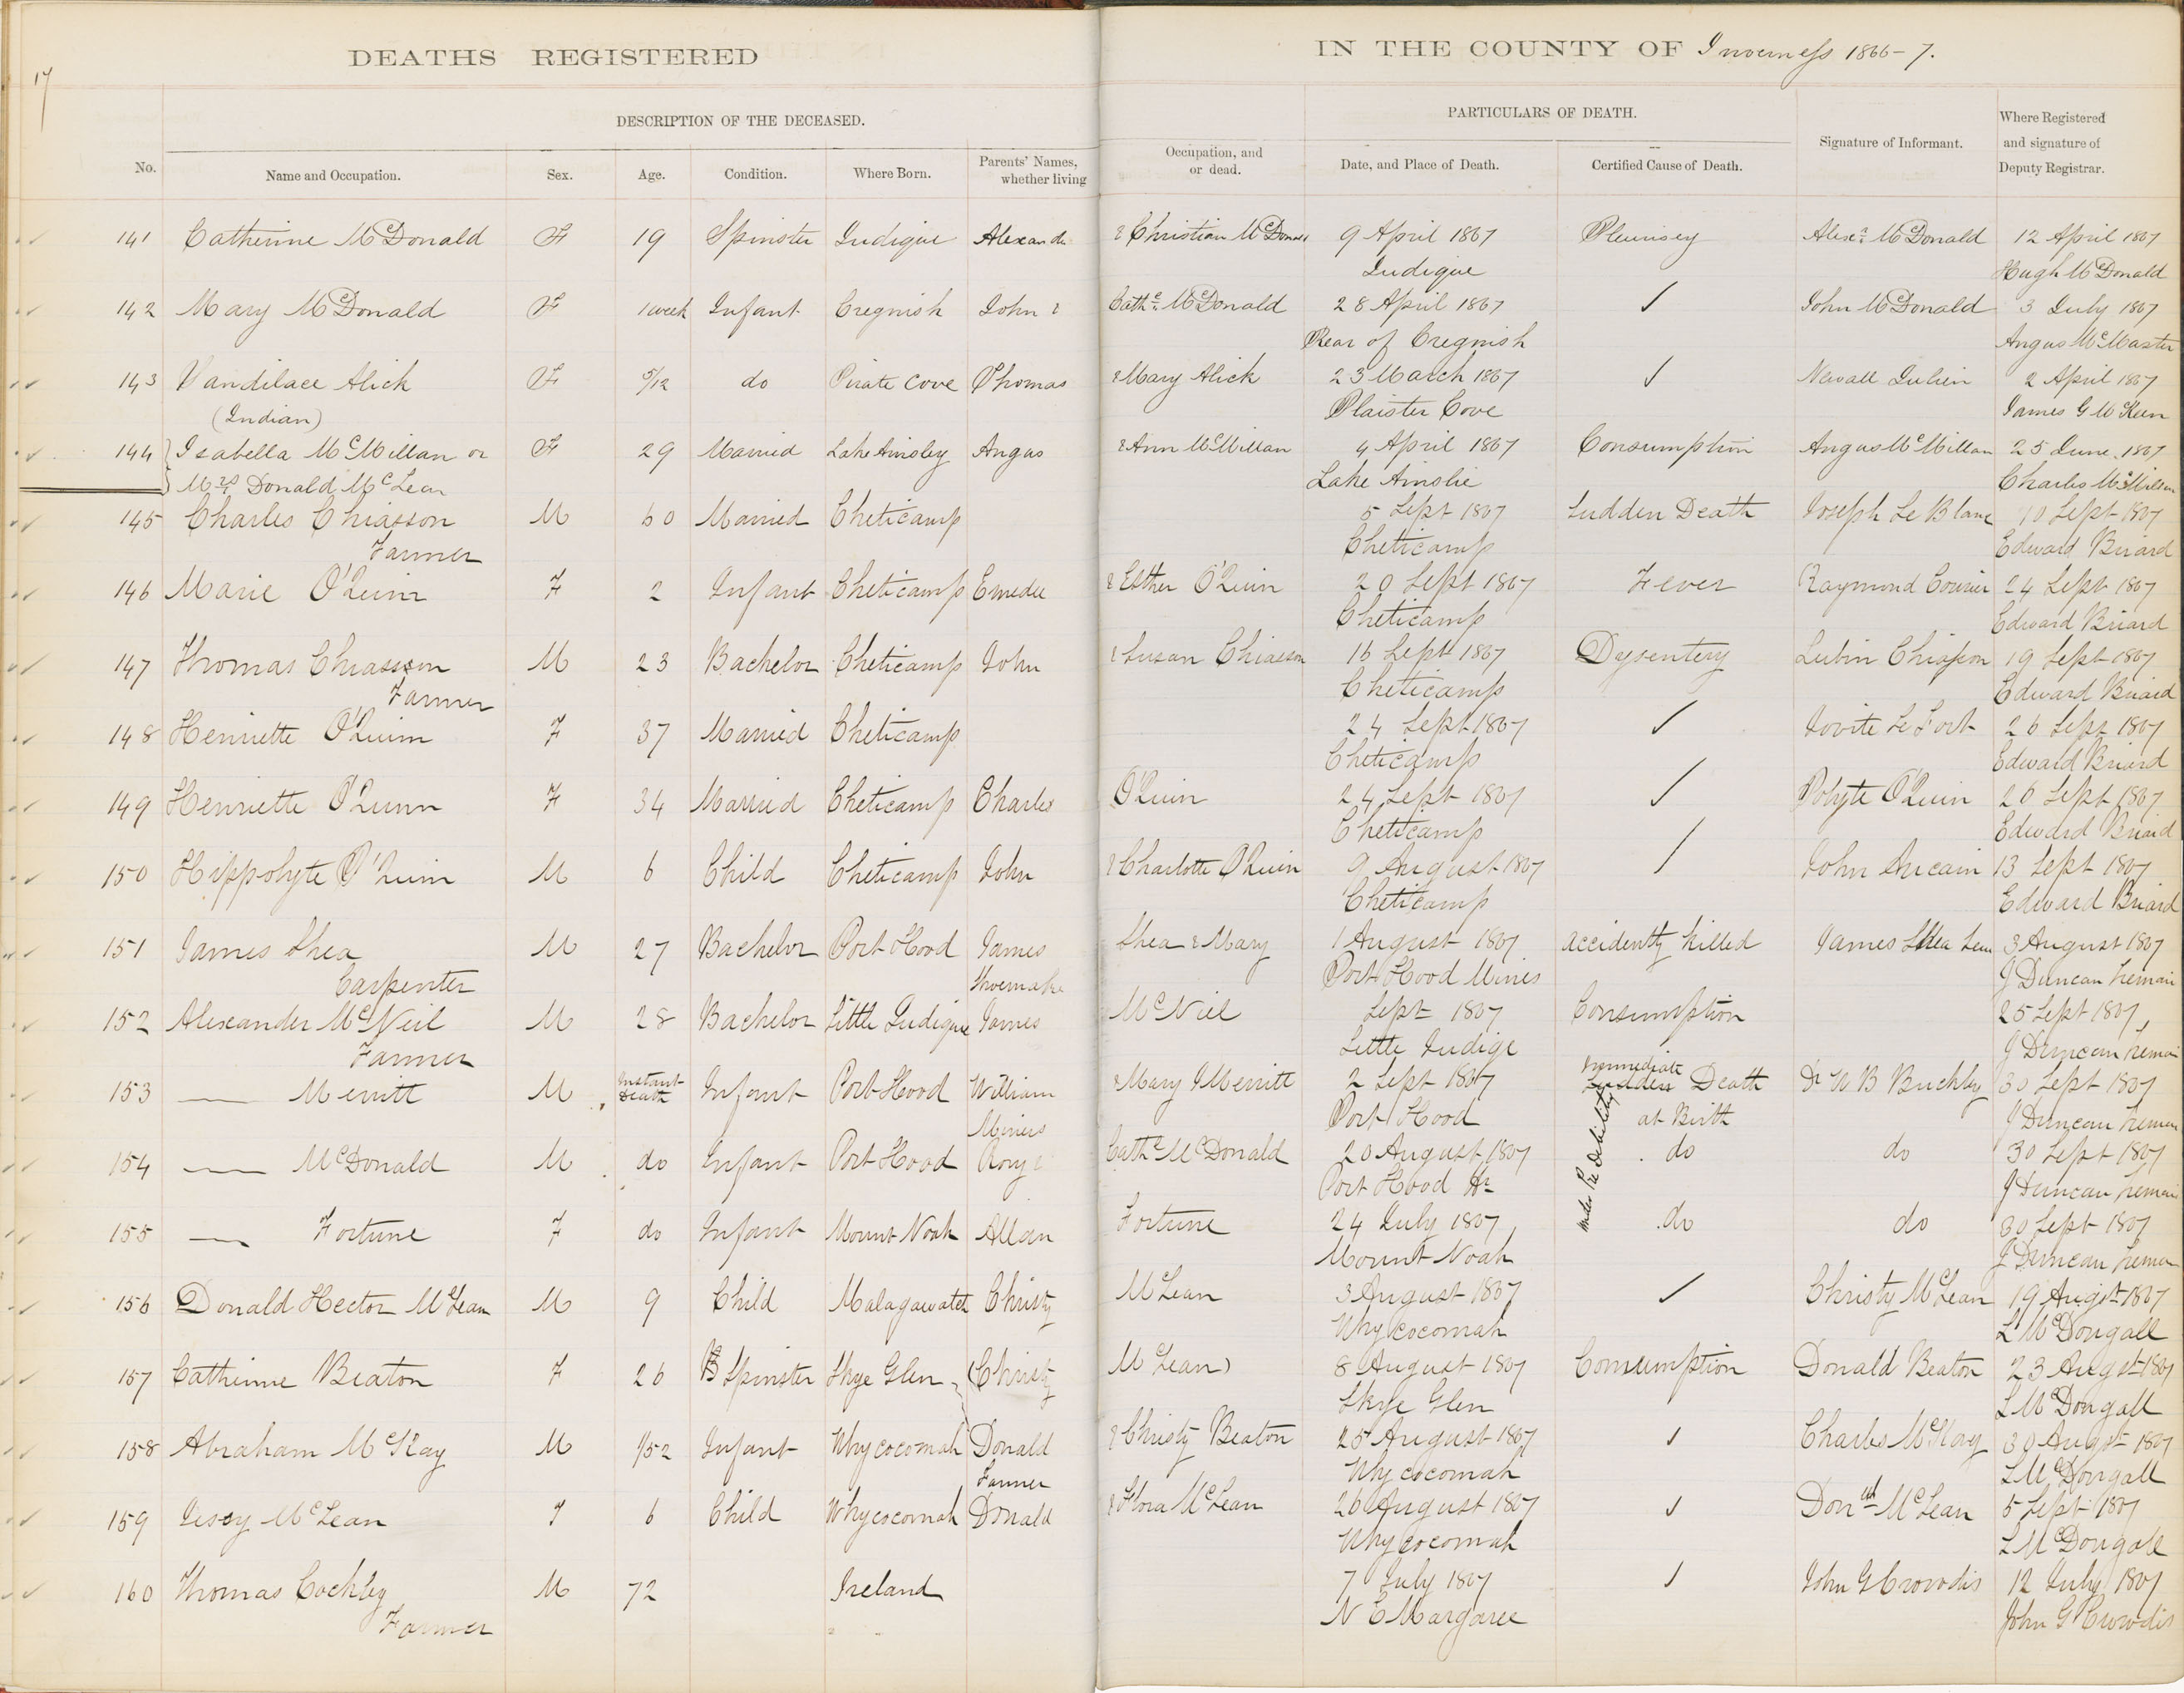 DEATHS REGISTERED IN THE COUNTY OF Inverness 1866-7.
17
DESCRIPTION OF THE DECEASED. PARTICULARS OF DEATH.
No. Name and Occupation. Sex. Age. Condition. Where Born. Parents' Names, whether living Occupation, and or dead. Date, and Place of Death. Certified Cause of Death. Signature of Informant. Where Registered and signature of Deputy Registrar.
141 Catherine McDonald F 19 Spinster Judique Alexander & Christian McDonald 9 April 1867 Pleurisey Alexr. McDonald 12 April 1867
Judique Hugh McDonald
142 Mary McDonald F 1 week Infant Cregnish John & Cathe. McDonald 28 April 1867 ✓ John McDonald 3 July 1867
Rear of Cregnish Angus McMaster
143 Vandilace Alick F 5/12 do Pirate Cove Thomas & Mary Alick 23 March 1867 ✓ Newall Julien 2 April 1867
(Indian) Plaister Cove James G McKeen
144 Isabella McMillan or F 29 Married Lake Ainsley Angus & Ann McMillan 4 April 1867 Consumption Angus McMillan 25 June 1867
Mrs Donald McLean Lake Ainslie Charles McMillan
145 Charles Chiasson M 60 Married Cheticamp 5 Sept 1867 Sudden Death Joseph Le Blanc 10 Sept 1867
Farmer Cheticamp Edward Briard
146 Marie O'Quin F 2 Infant Cheticamp Emedee & Esther O'Quin 20 Sept 1867 Fever Raymond 24 Sept 1867
Cheticamp Edward Briard
147 Thomas Chiasson M 23 Bachelor Cheticamp John & Susan Chiasson 16 Sept 1867 Dysentery Lubin Chiasson 19 Sept 1867
Farmer Cheticamp Edward Briard
148 Henriette O'Quin F 37 Married Cheticamp 24 Sept 1867 ✓ Jovite Le Fort 26 Sept 1867
Cheticamp Edward Briard
149 Henriette O'Quinn F 34 Married Cheticamp Charles O'Quin 24 Sept 1867 ✓ Polyte O'Quin 26 Sept 1867
Cheticamp Edward Briard
150 Hippolyte O'Quin M 6 Child Cheticamp John & Charlotte O'Quin 9 August 1867 / John Aucain 13 Sept 1867
Cheticamp Edward Briard
151 James Shea M 27 Bachelor Port Hood James Shea & Mary 1 August 1867 accidently killed James Shea Sen 3 August 1867
Carpenter Shoemaker Port Hood Mines J Duncan
152 Alexander McNeil M 28 Bachelor Little Judique James McNeil Sept 1867 Consumption 25 Sept 1867
Farmer Little Judige J Duncan
153 — Merritt M Instant Death Infant Port Hood William & Mary Merritt 2 Sept 1867 Immediate Sudden Death Dr W B Buckley 30 Sept 1867
Miners Port Hood at Birth J Duncan
154 — McDonald M do Infant Port Hood Rory & Cathe McDonald 20 August 1867 do do 30 Sept 1867
Port Hood Hr J Duncan
155 — Fortune F do Infant Mount Noah Allan Fortune 24 July 1867 do do 30 Sept 1867
Mount Noah J Duncan
156 Donald Hector McLean M 9 Child Malagawatch Christy McLean 3 August 1867 ✓ Christy McLean 19 Augst 1867
Whycocomah L McDougall
157 Catherine Beaton F 26 Spinster Skye Glen (Christy McLean) 8 August 1867 Consumption Donald Beaton 23 Augst 1867
Skye Glen L McDougall
158 Abraham McKay M 1/52 Infant Whycocomah Donald & Christy Beaton 25 August 1867 ✓ Charles McKay 30 Augst 1867
Farmer Whycocomah L McDougall
159 Jessy McLean F 6 Child Whycocomah Donald & Flora McLean 26 August 1867 ✓ Dond McLean 5 Sept 1867
Whycocomah L McDougall
160 Thomas Cockley M 72 Ireland 7 July 1867 ✓ John G Crowdis 12 July 1867
Farmer N E Margaree John G Crowdis